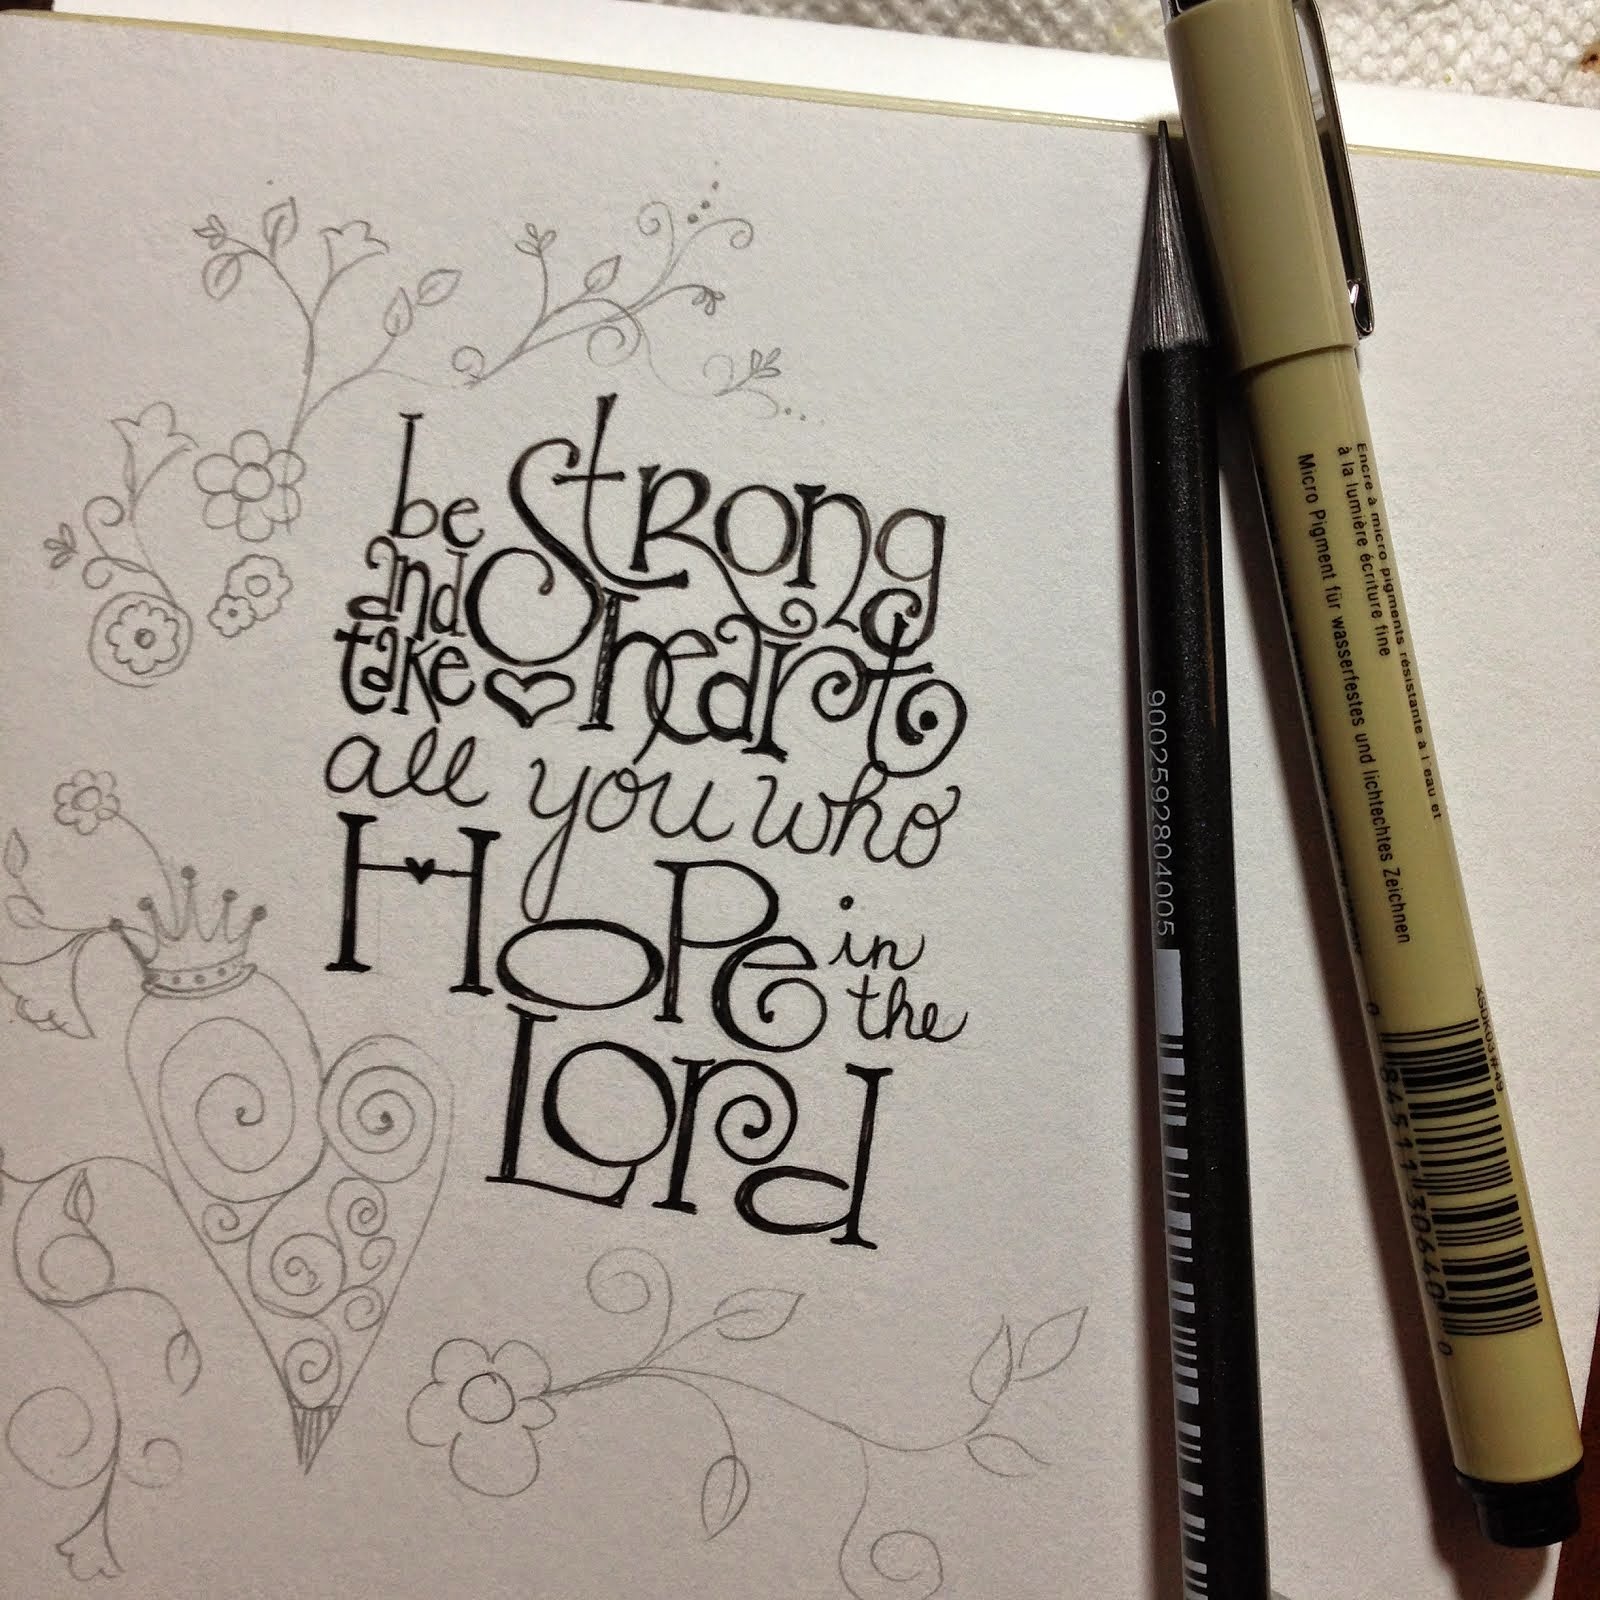 be Strong
and
take heart
all you who
Hope in
the
Lord
9002592804005
Encre à micro pigments résistante à l'eau et
à la lumière écriture fine
Micro Pigment für wasserfestes und lichtechtes Zeichnen
XSDK03#49
0 84511 30640 0